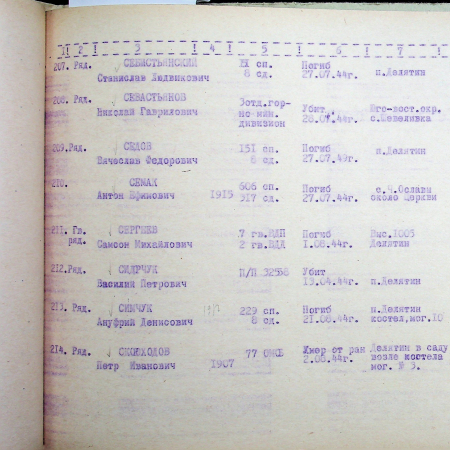 1 2 3 4 5 6 7
207. Ряд. СЕБАСТЬЯНСКИЙ сп. Погиб
Станислав Людвикович 8 сд. 27.07.44г. п.Делятин
208. Ряд. СЕВАСТЬЯНОВ 3отд.гор- Убит Юго-вост.окр.
Николай Гаврилович но-мин. 28.07.44г. с.Шевеливка
дивизион
209. Ряд. СЕДОВ 151 сп. Погиб п.Делятин
Вячеслав Федорович 8 сд. 27.07.44г.
210. СЕМАК 606 сп. Погиб с.Ч.Ослава
Антон Ефимович 1915 317 сд. 27.07.44г. около церкви
211. Гв. СЕРГЕЕВ 7 гв.ВДП Погиб Выс.1003
ряд. Самсон Михайлович 2 гв.ВДД 1.08.44г. Делятин
212. Ряд. СИДРЧУК П/П 32558 Убит
Василий Петрович 13.04.44г. п.Делятин
213. Ряд. СИМЧУК 229 сп. Погиб п.Делятин
Ануфрий Денисович 8 сд. 21.08.44г. костел,мог.10
214. Ряд. СКОРОХОДОВ 77 ОМСБ Умер от ран Делятин в саду
Петр Иванович 1907 2.08.44г. возле костела
мог. № 3.